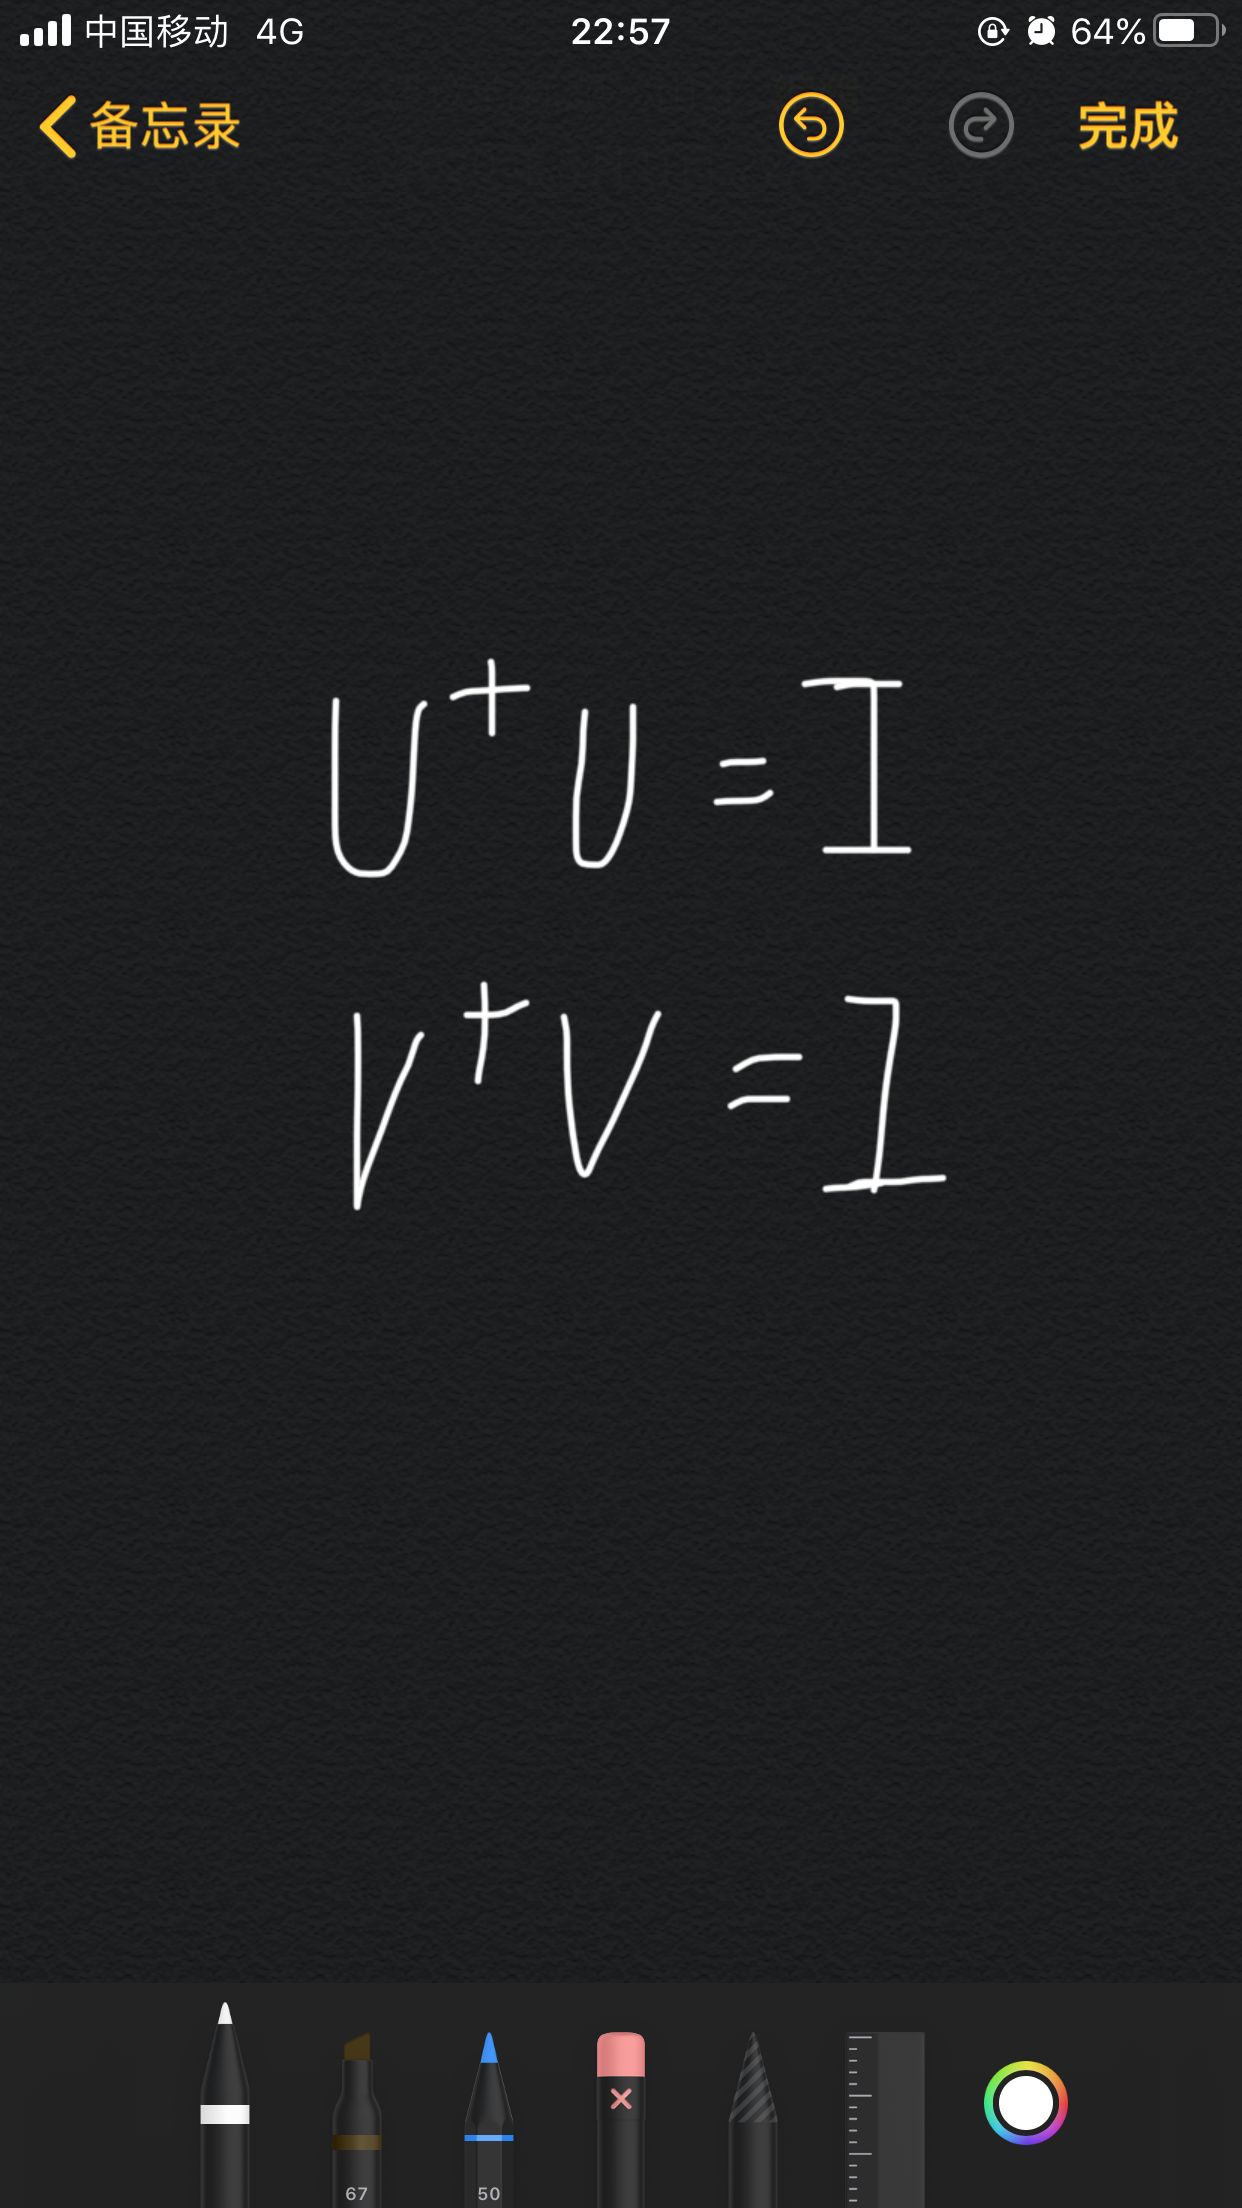 中国移动 4G 22:57 64%
备忘录 完成
U⁺U=I
V⁺V=I
67 50